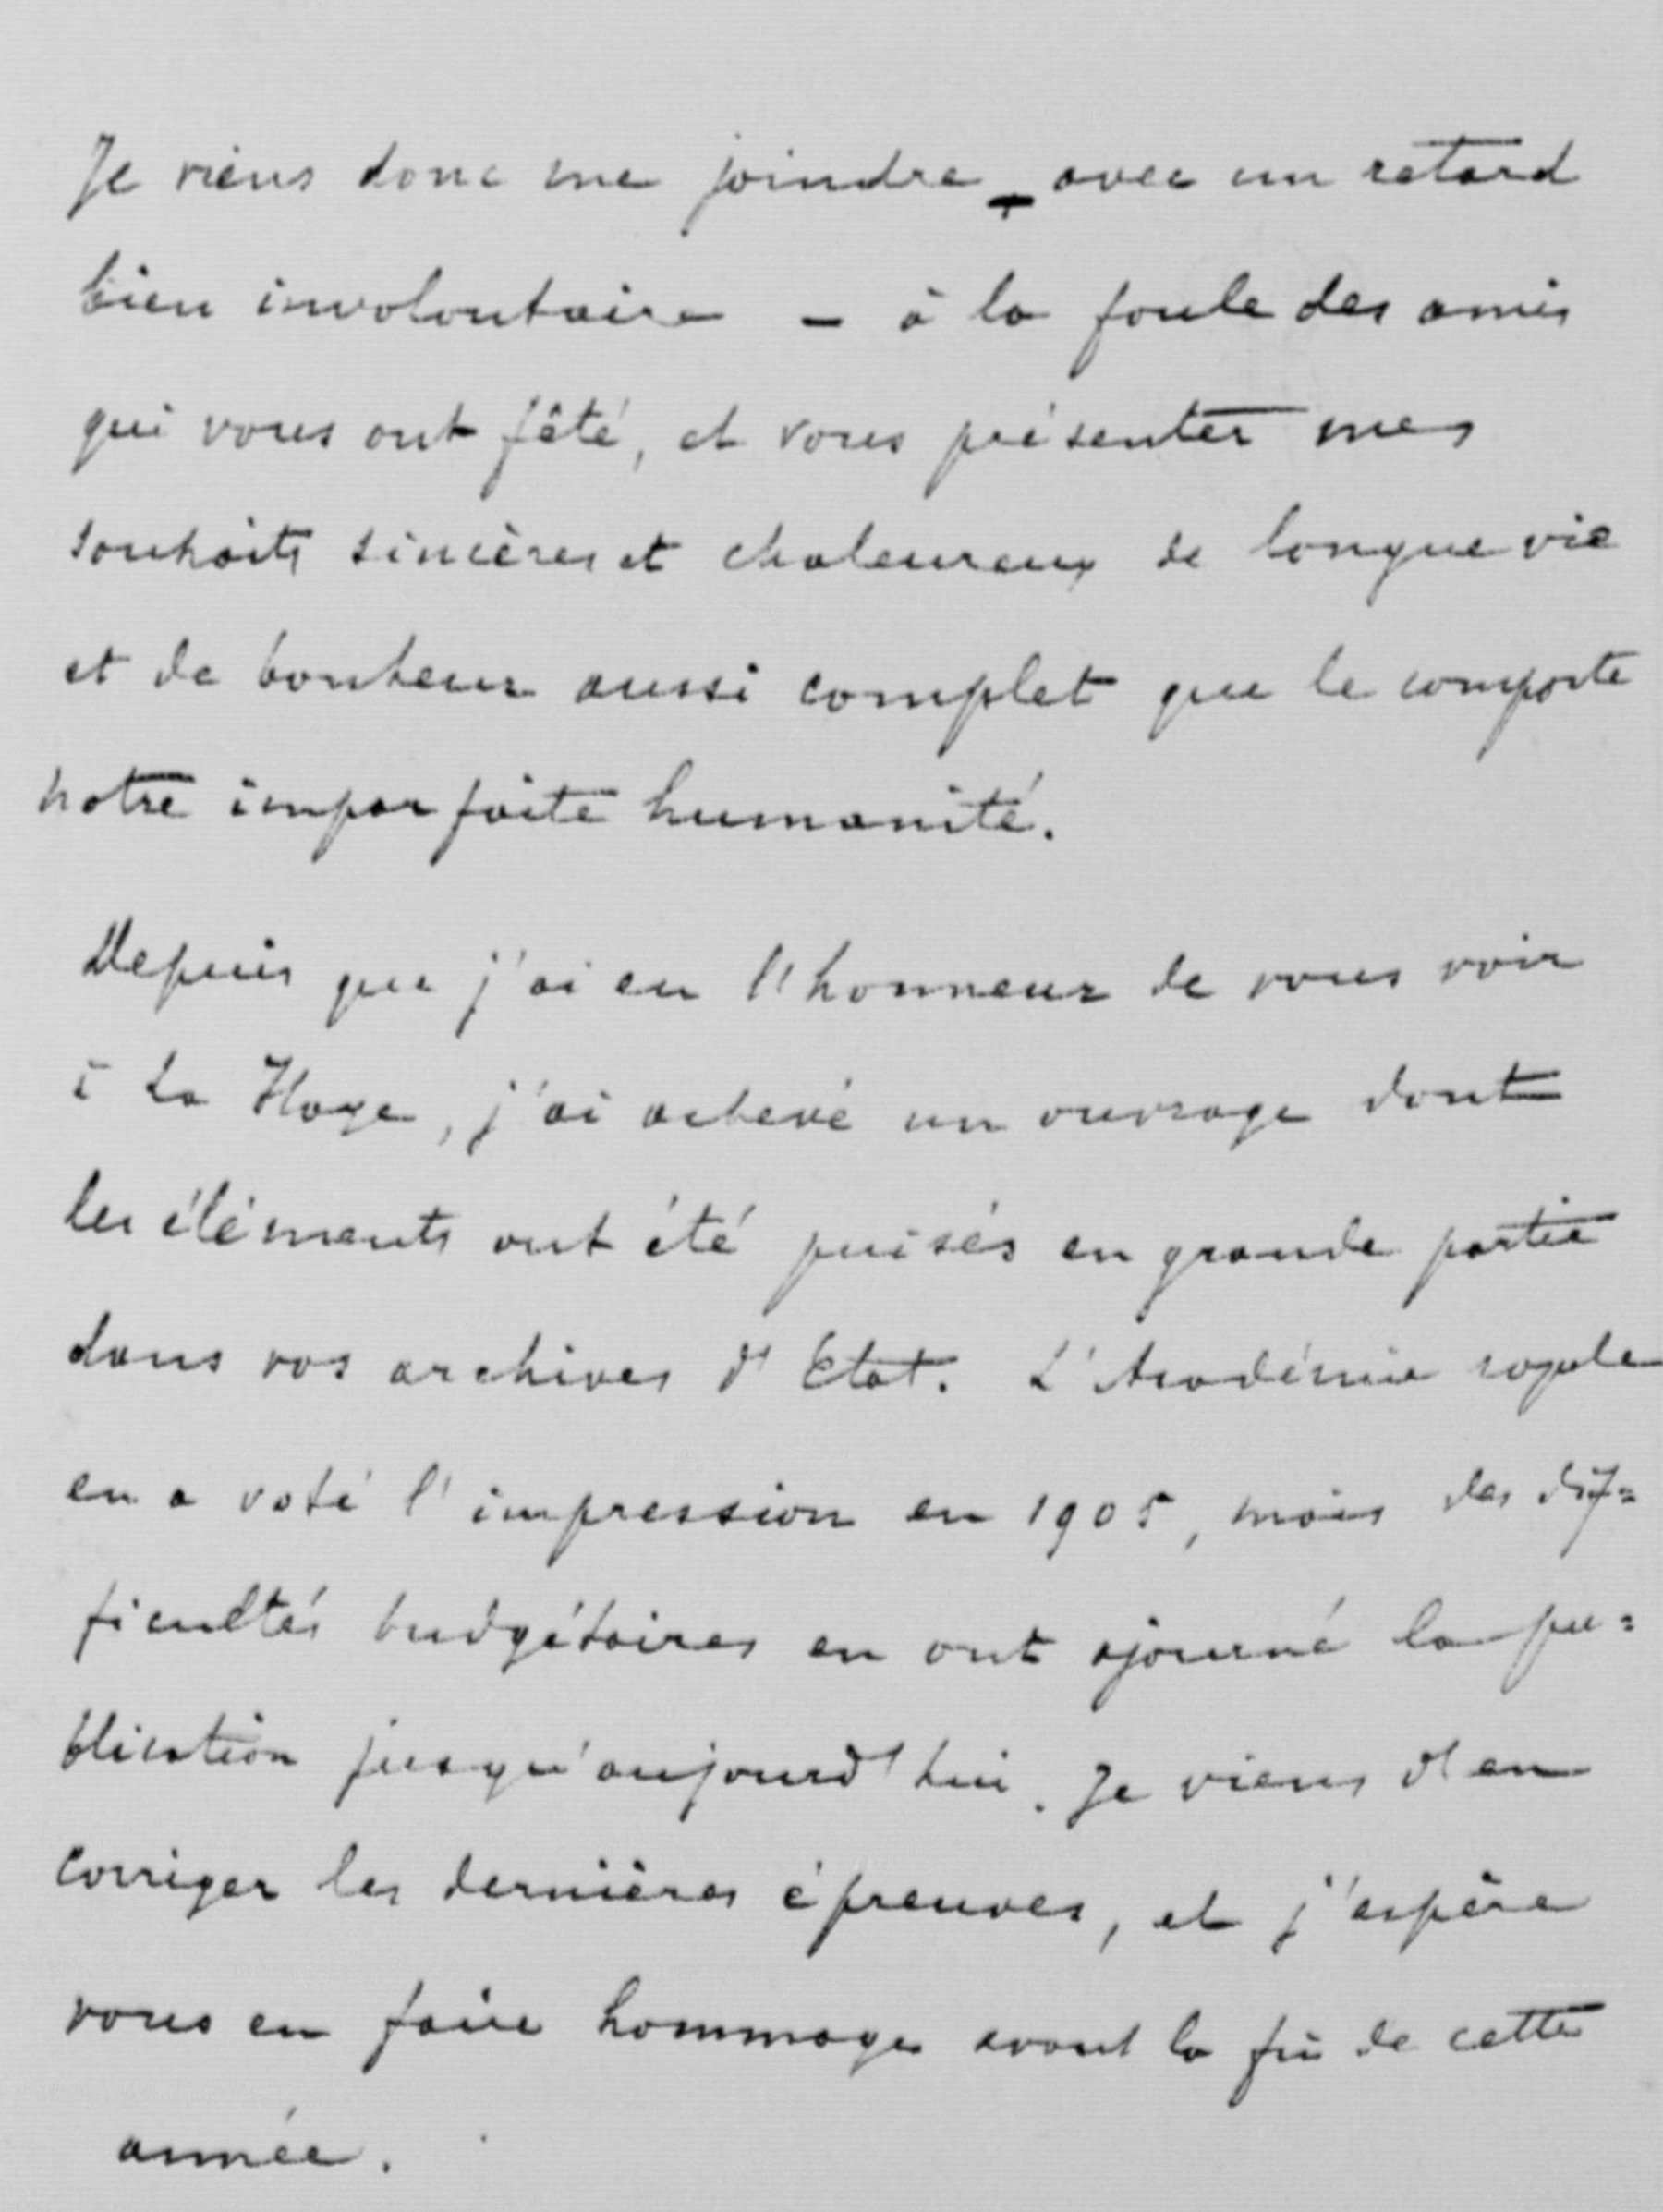 Je viens donc me joindre – avec un retard
bien involontaire – à la foule des amis
qui vous ont fêté, et vous présenter mes
souhaits sincères et chaleureux de longue vie
et de bonheur aussi complet que le comporte
notre imparfaite humanité.
Depuis que j'ai eu l'honneur de vous voir
à La Haye, j'ai achevé un ouvrage dont
les éléments ont été puisés en grande partie
dans vos archives d'Etat. L'Académie royale
en a voté l'impression en 1905, mais des dif=
ficultés budgétaires en ont ajourné la pu=
blication jusqu'aujourd'hui. Je viens d'en
corriger les dernières épreuves, et j'espère
vous en faire hommage avant la fin de cette
année.